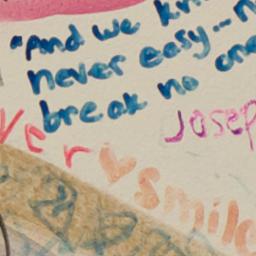 "And we kn
never easy...n
break no one
Joseph
ver
smile